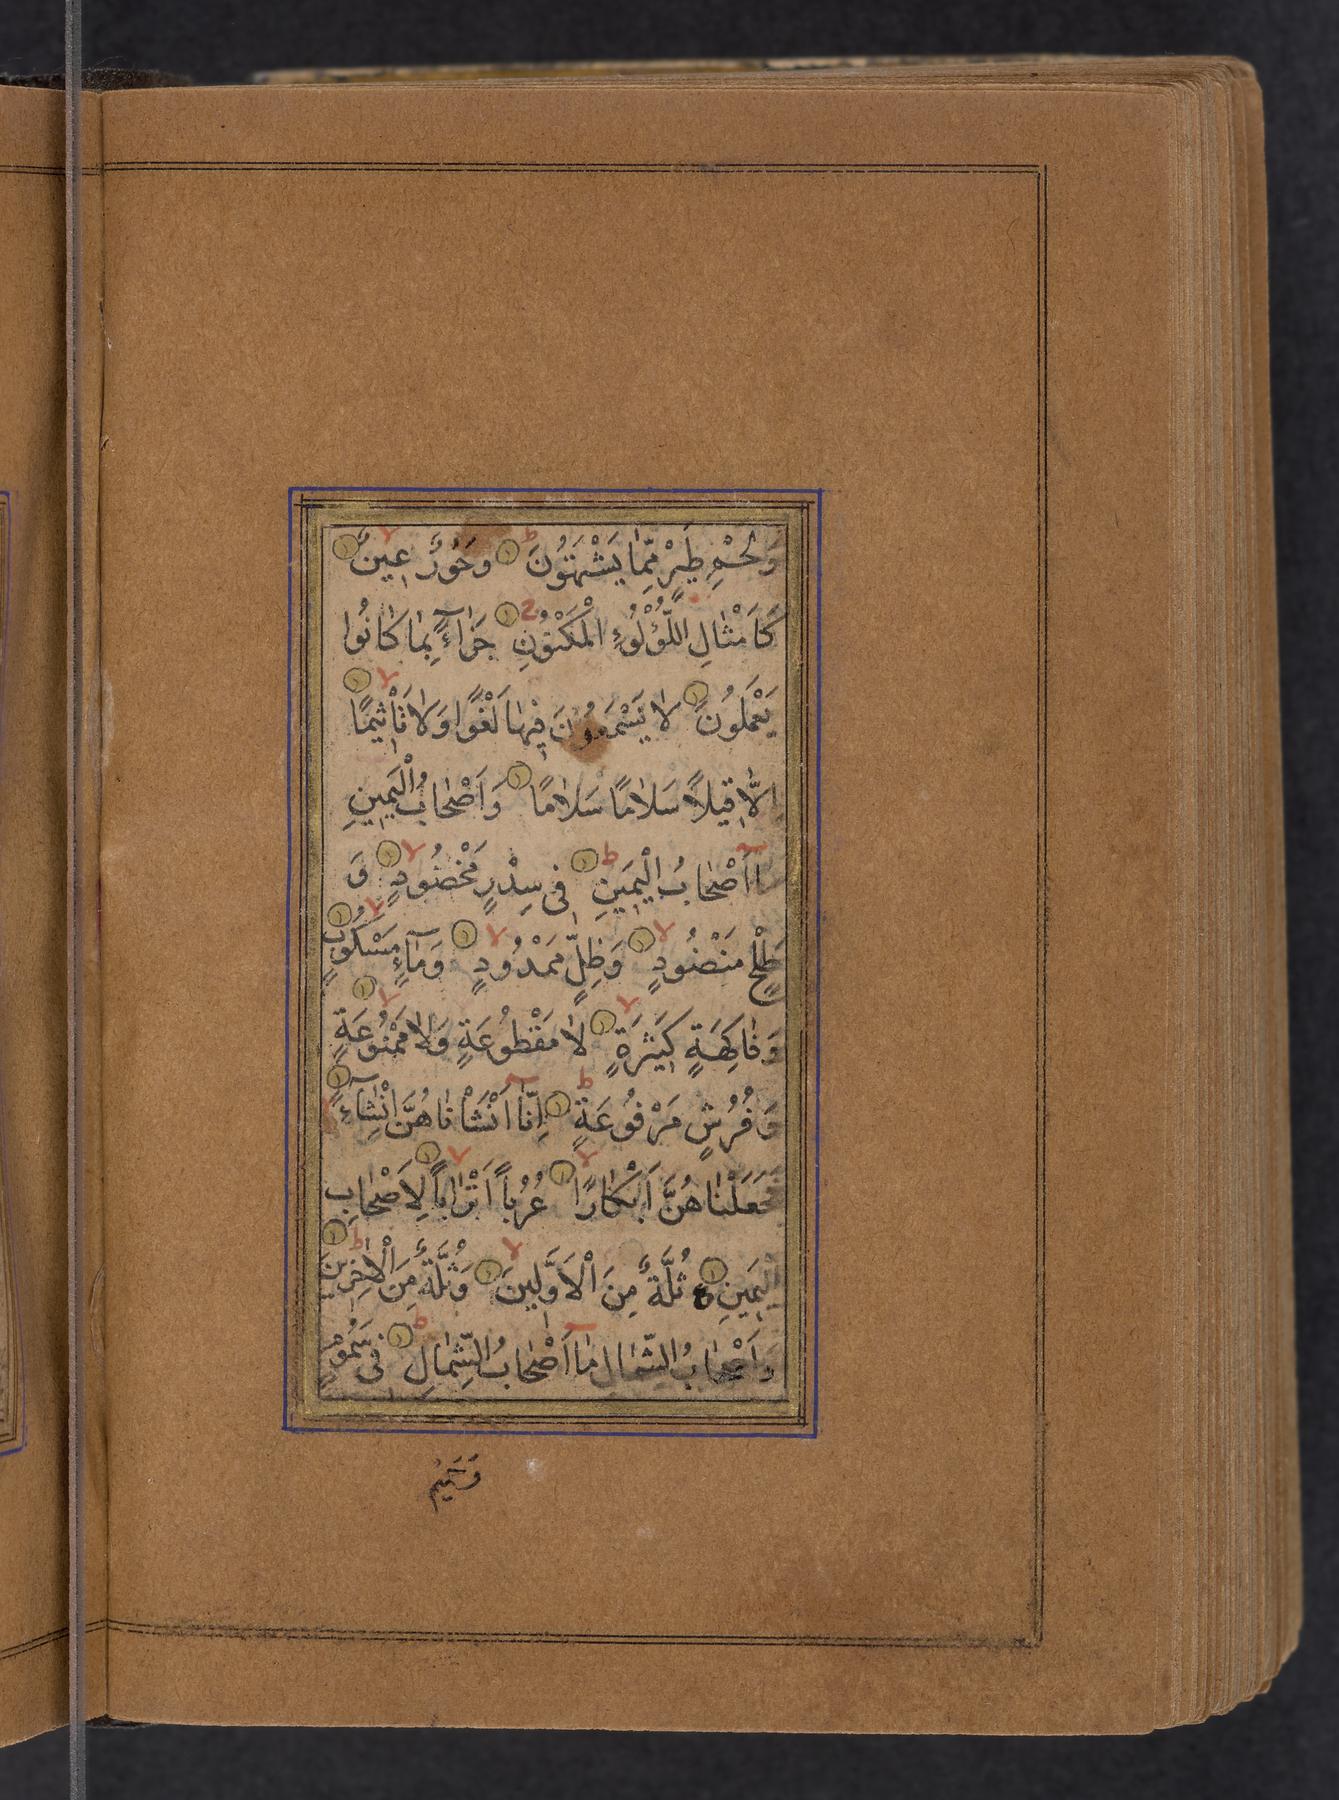 وَلَحْمِ طَيْرٍ مِمَّا يَشْتَهُونَ وَحُورٌ عِينٌ
كَاَمْثَالِ اللُّؤْلُؤِ الْمَكْنُونِ جَزَاءً بِمَا كَانُوا
يَعْمَلُونَ لَا يَسْمَعُونَ فِيهَا لَغْوًا وَلَا تَأْثِيمًا
اِلَّا قِيلًا سَلَامًا سَلَامًا وَاَصْحَابُ الْيَمِينِ
مَا اَصْحَابُ الْيَمِينِ فِى سِدْرٍ مَخْضُودٍ وَ
طَلْحٍ مَنْضُودٍ وَظِلٍّ مَمْدُودٍ وَمَآءٍ مَسْكُوبٍ
وَفَاكِهَةٍ كَثِيرَةٍ لَا مَقْطُوعَةٍ وَلَا مَمْنُوعَةٍ
وَفُرُشٍ مَرْفُوعَةٍ اِنَّا اَنْشَأْنَاهُنَّ اِنْشَآءً
فَجَعَلْنَاهُنَّ اَبْكَارًا عُرُبًا اَتْرَابًا لِاَصْحَابِ
الْيَمِينِ ثُلَّةٌ مِنَ الْاَوَّلِينَ وَثُلَّةٌ مِنَ الْاٰخِرِينَ
وَاَصْحَابُ الشِّمَالِ مَا اَصْحَابُ الشِّمَالِ فِى سَمُومٍ
وَحَمِيمٍ